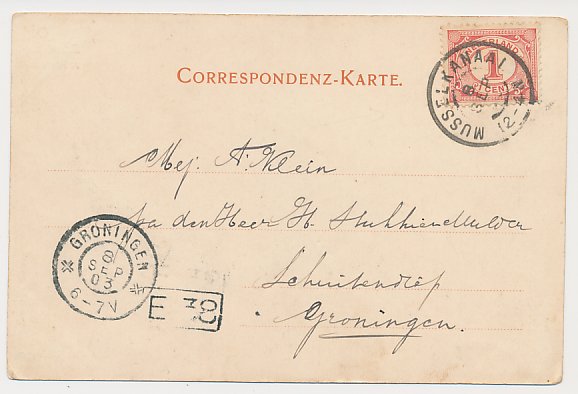 NEDERLAND
1
CENT
MUSSELKANAAL
SEP
12-4N
CORRESPONDENZ-KARTE.
Mej. A. Klein
den Heer H.
Schuitendiep
Groningen.
GRONINGEN
8
SEP
03
6-7V
E 38